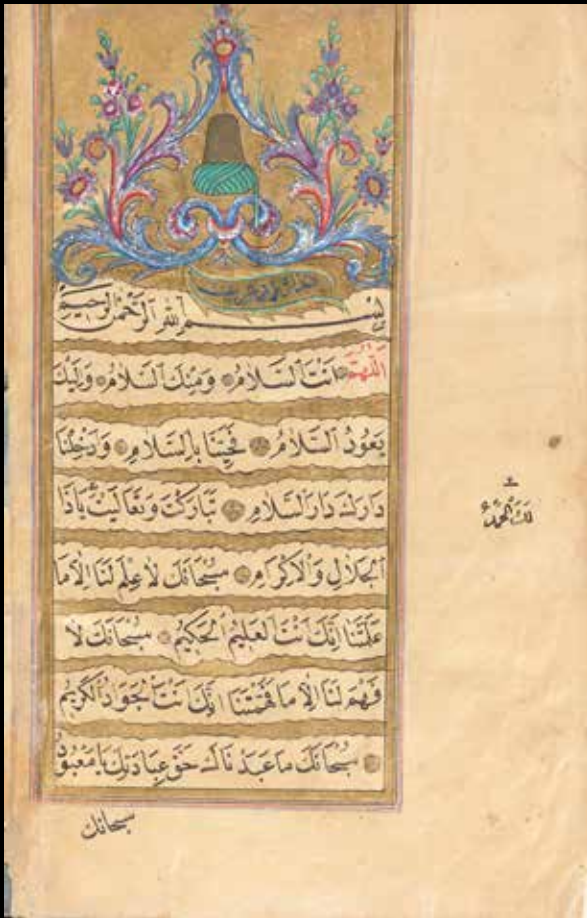 بِسْمِ اللهِ الرَّحْمٰنِ الرَّحِيمِ
اَللّٰهُمَّ اَنْتَ السَّلَامُ وَمِنْكَ السَّلَامُ وَلَيْكَ
يَعُودُ السَّلَامُ فَحَيِّنَا بِالسَّلَامِ وَدَخِلْنَا
دَارَكَ دَارَ السَّلَامِ تَبَارَكْتَ وَتَعَالَيْتَ يَاذَا
لَكَ الْحَمْدُ
الْجَلَالِ وَالْاِكْرَامِ سُبْحَانَكَ لَا عِلْمَ لَنَا اِلَّا مَا
عَلَّمْتَنَا اِنَّكَ اَنْتَ الْعَلِيمُ الْحَكِيمُ سُبْحَانَكَ لَا
فَهْمَ لَنَا اِلَّا مَا فَهَّمْتَنَا اِنَّكَ اَنْتَ الْجَوَادُ الْكَرِيمُ
سُبْحَانَكَ مَا عَبَدْنَاكَ حَقَّ عِبَادَتِكَ يَا مَعْبُودُ
سبحانك